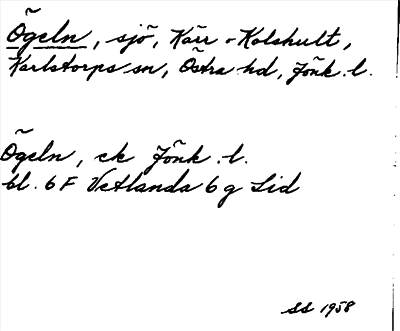 Ögeln, sjö, Kärr o Kolshult,
Karlstorps sn, Östra hd, Jönk. l.
Ögeln, ek Jönk. l.
bl. 6 F Vetlanda 6 g Sid
SS 1958